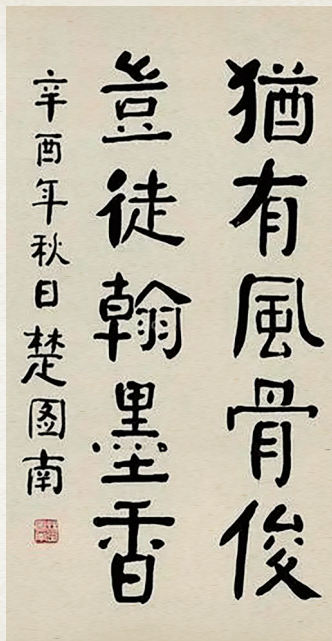 猶有風骨俊
豈徒翰墨香
辛酉年秋日楚图南